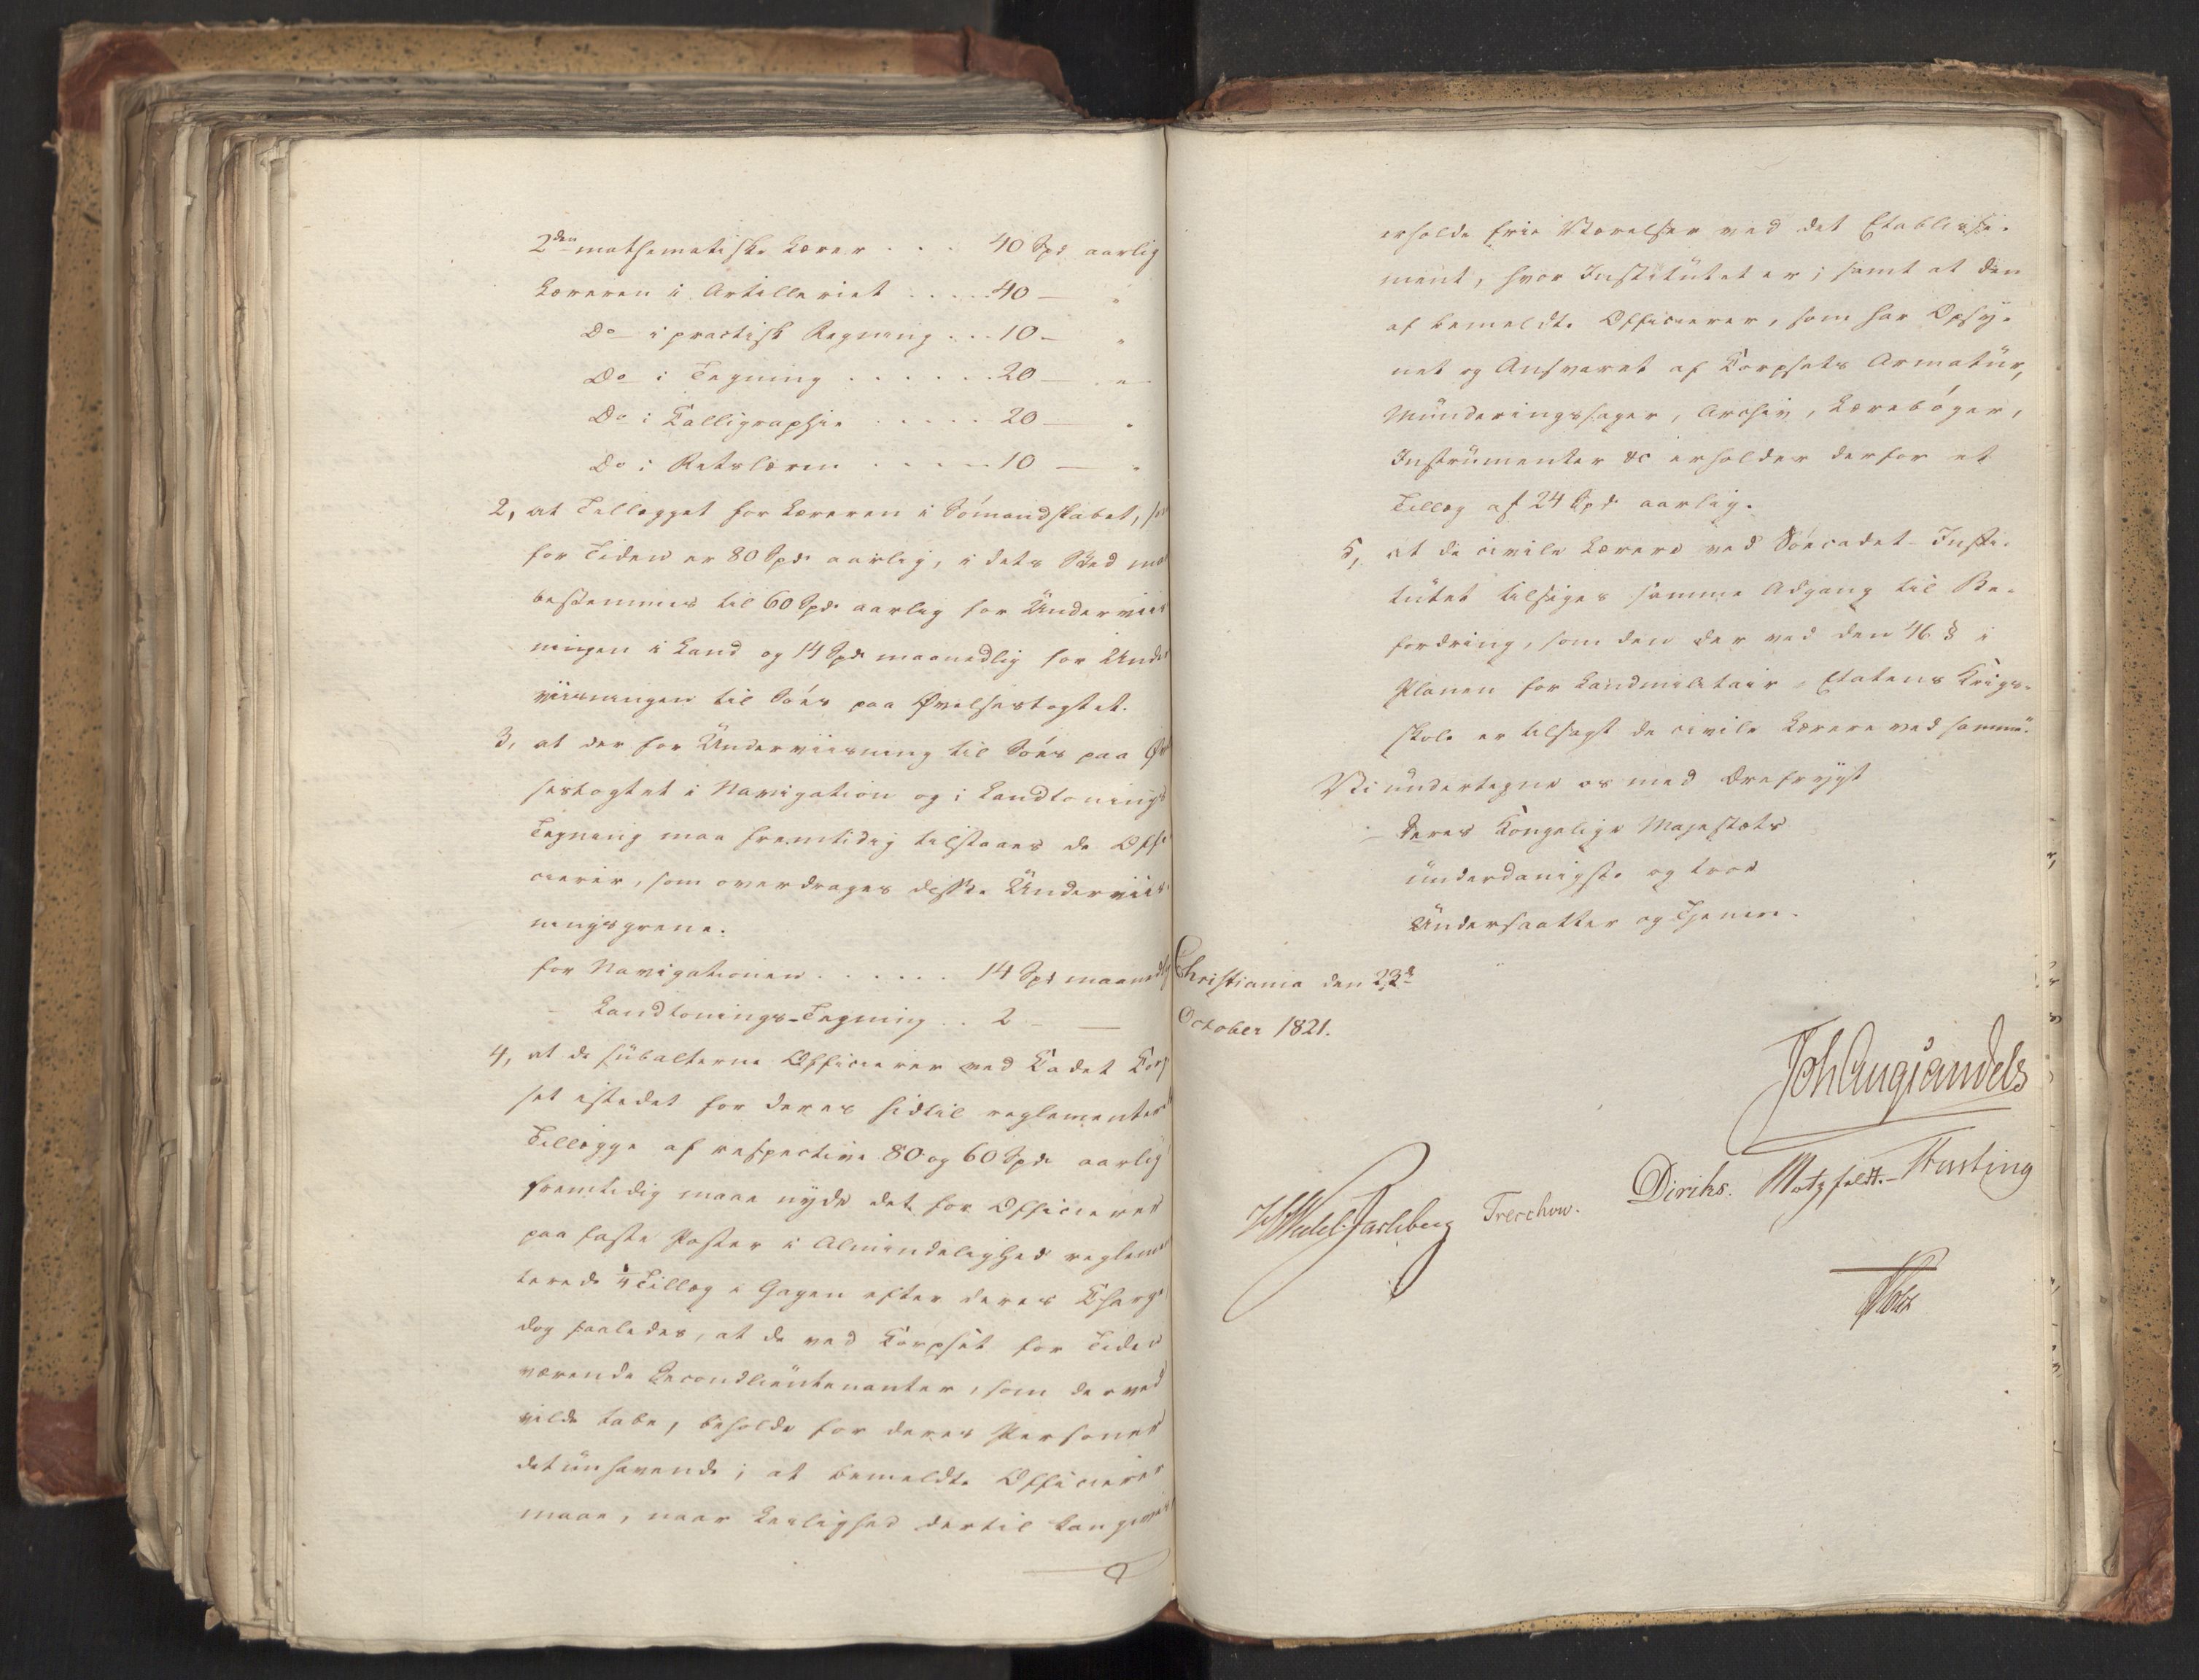 2den mathematiske Lærer . . . 40 Spd aarlig
Læreren i Artilleriet . . . . 40 — "
Do i practisk Regning . . . 10 — "
Do i Tegning . . . . . . 20 — "
Do i Kalligraphie . . . . . 20 — "
Do i Retslæren . . . . . 10 — "
2, at Tillægget for Læreren i Sømandskabet,
for Tiden er 80 Spd. aarlig, i dets Sted maa
bestemmes til 60 Spd. aarlig for Underviis
ningen i Land og 14 Spd. maanedlig for Under
viisningen til Søes paa Øvelsestogtet.
3, at der for Underviisning til Søes paa Øvel
sestogtet i Navigation og i Landtonings
Tegning maa fremtidig tilstaaes de Offi
cierer, som overdrages disse Underviis
ningsgrene.
for Navigationen . . . . . . 14 Spd maanedlig
— Landtonings-Tegning . . 2 — —
4, at de subalterne Officierer ved Kadet Korp
set istedet for deres hidtil reglementerede
Tillægge af respective 80 og 60 Spd. aarlig
fremtidig maae nyde det for Officierer
paa faste Poster i Almindelighed reglemen
terede 1/4 Tillæg i Gagen efter deres Charge
dog saaledes, at de ved Korpset for Tiden
værende Secondlieutenanter, som derved
vilde tabe, beholde for deres Personer
det ünhavende; at bemeldte Officierer
maae, naar Leilighed dertil kan gives
erholde frie Værelser ved det Etablisse-
ment, hvor Institütet er; samt at den
af bemeldte Officierer, som har Opsy-
net og Ansvaret af Korpsets Armatür,
Münderingssager, Archiv, Lærebøger,
Instrümenter &c erholder derfor et
Tillæg af 24 Spd. aarlig.
5, at de civile Lærere ved Søecadet-Insti-
tütet tilsiges samme Adgang til Be-
fordring, som den der ved den 46 § i
Planen for Landmilitair-Etatens Krigs-
skole er tilsagt de civile Lærere ved samme.
Vi ündertegne os med Ærefrygt
Deres Kongelige Majestæts
ünderdanigste og troe
Ündersaatter og Tjenere.
Christiania den 23d
October 1821.
Joh Aug Sandels
HWedel Jarlsberg Treschow. Diriks. Motzfeldt. Fasting
Holst